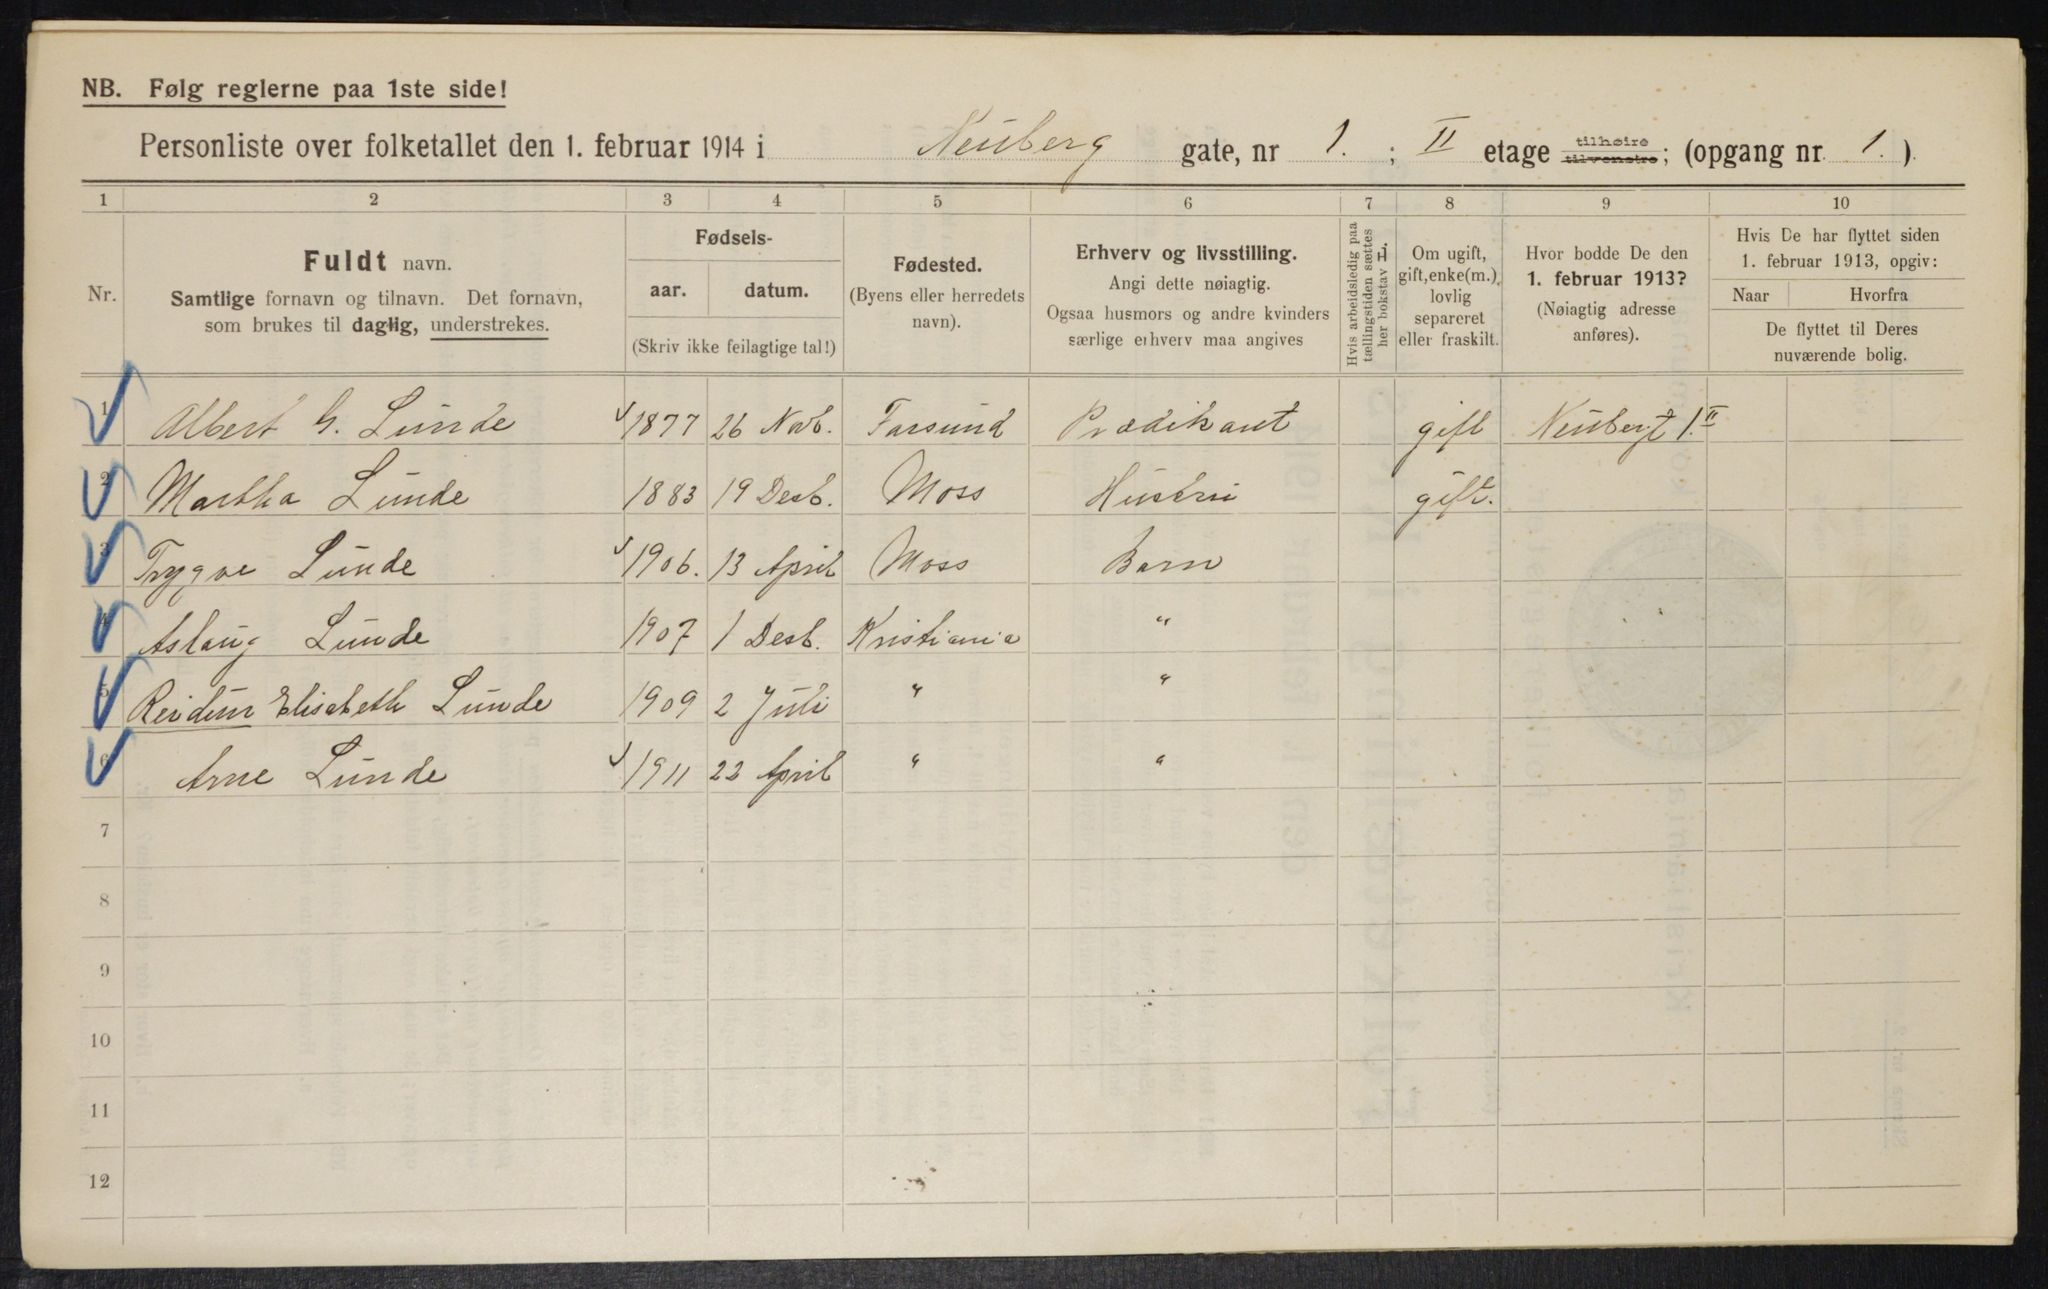 NB. Følg reglerne paa 1ste side!
Personliste over folketallet den 1. februar 1914 i Neuberg gate, nr 1. ; II etage tilhøire tilvenstre; (opgang nr. 1.).
1 2 3 4 5 6 7 8 9 10
Nr.
Fuldt navn.
Samtlige fornavn og tilnavn. Det fornavn,
som brukes til daglig, understrekes.
Fødsels-
aar. datum.
(Skriv ikke feilagtige tal!)
Fødested.
(Byens eller herredets
navn).
Erhverv og livsstilling.
Angi dette nøiagtig.
Ogsaa husmors og andre kvinders
særlige erhverv maa angives
Hvis arbeidsledig paa
tællingstiden sættes
her bokstav L.
Om ugift,
gift, enke(m.),
lovlig
separeret
eller fraskilt.
Hvor bodde De den
1. februar 1913?
(Nøiagtig adresse
anføres).
Hvis De har flyttet siden
1. februar 1913, opgiv:
Naar Hvorfra
De flyttet til Deres
nuværende bolig.
1 Albert G. Lunde 1877 26 Novb. Farsund Prædikant gift Neubergt 1. II
2 Martha Lunde 1883 19 Desb. Moss Hustru gift.
3 Trygve Lunde 1906. 13 April Moss Barn
4 Aslaug Lunde 1907 1 Desb. Kristiania "
5 Reidun Elisabeth Lunde 1909 2 Juli " "
6 Arne Lunde 1911 22 April " "
7
8
9
10
11
12